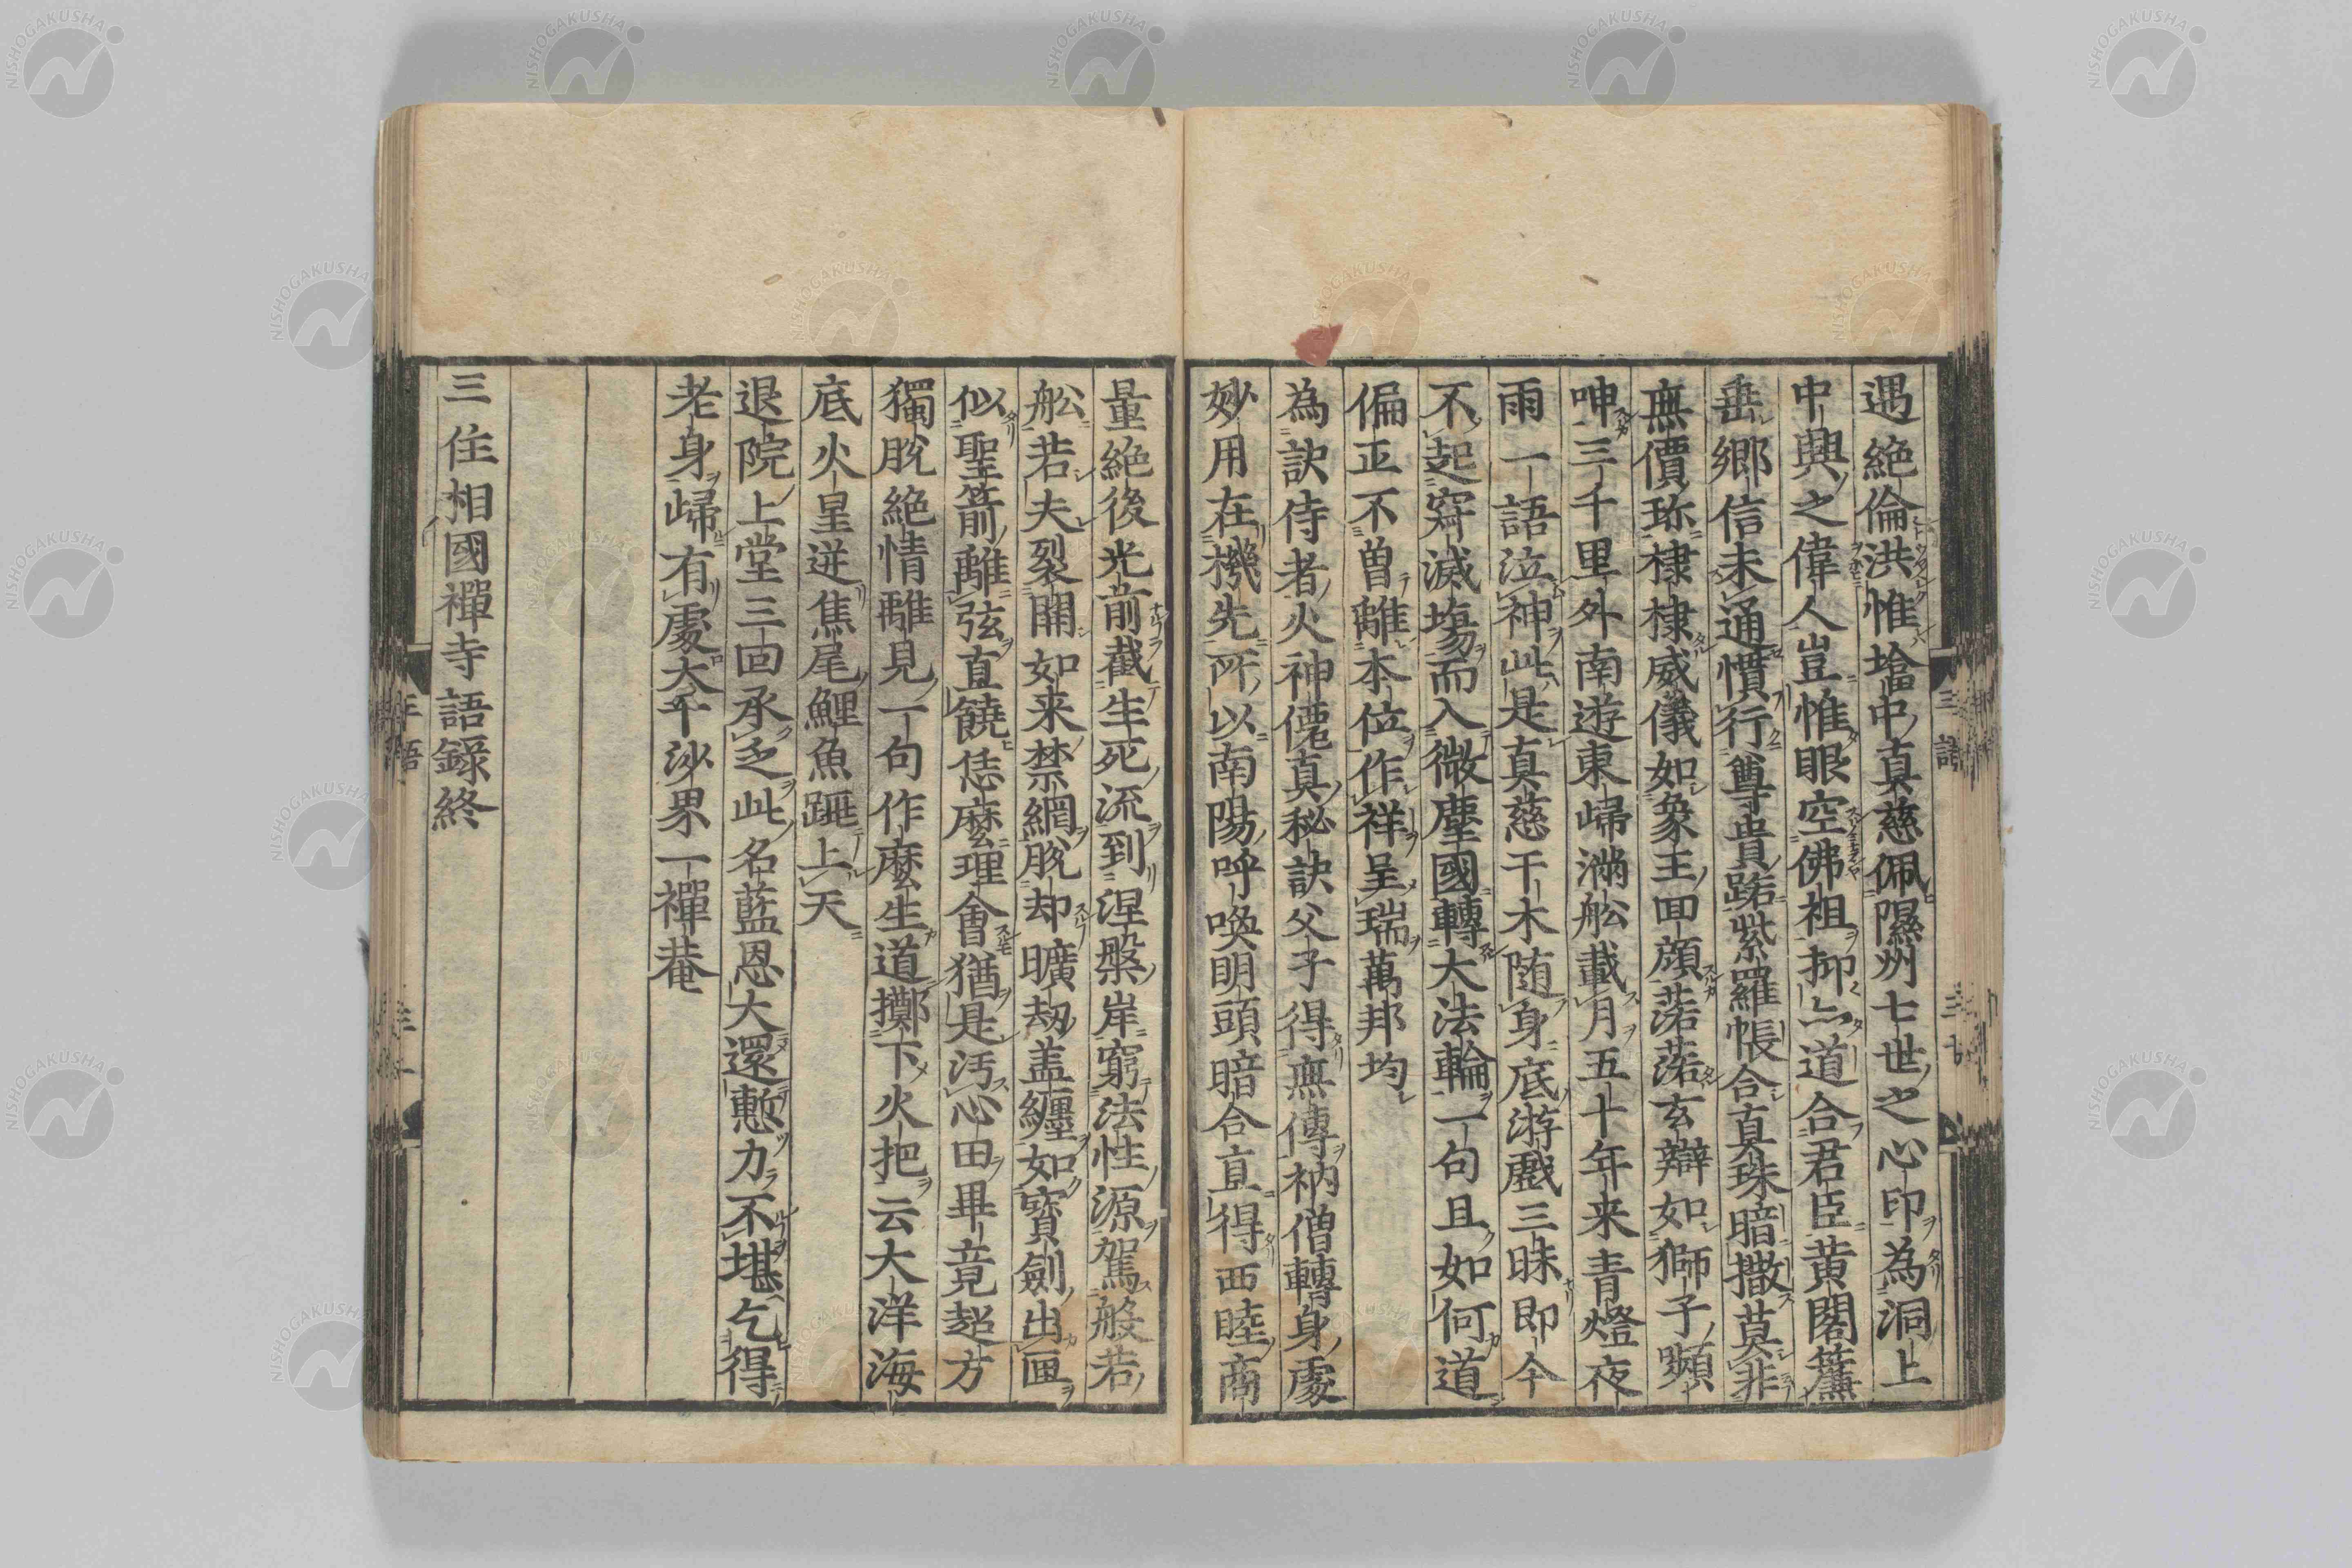 遇絶倫洪惟塔中真慈佩隰州七世之心印為洞上
中興之偉人豈惟眼空佛祖抑亦道合君臣黄閣簾
垂鄉信未通慣行尊貴路紫羅帳合真珠暗撒莫非
無價珎棣棣威儀如象王回顔落落玄辯如獅子嚬
呻三千里外南遊東帰滿舩載月五十年来青燈夜
雨一語泣神此是真慈干木随身底游戲三昧即今
不起寂滅場而入微塵國轉大法輪一句且如何道
偏正不曽離本位作祥呈瑞萬邦均
為訣侍者火神僊真秘訣父子得無傳衲僧轉身處
妙用在機先所以南陽呼喚明頭暗合直得西睦商
量絶後光前截生死流到涅槃岸窮法性源駕般若
舩若夫裂開如来禁網脫却曠劫盖纏如寳劍出匣
似聖箭離弦直饒恁麼理會猶是汚心田畢竟超方
獨脫絶情離見一句作麼生道擲下火把云大洋海
底火星迸焦尾鯉魚跳上天
退院上堂三回承乏此名藍恩大還慙力不堪乞得
老身帰有處大千沙界一禪菴
三住相國禪寺語録終
三語
NISHOGAKUSHA